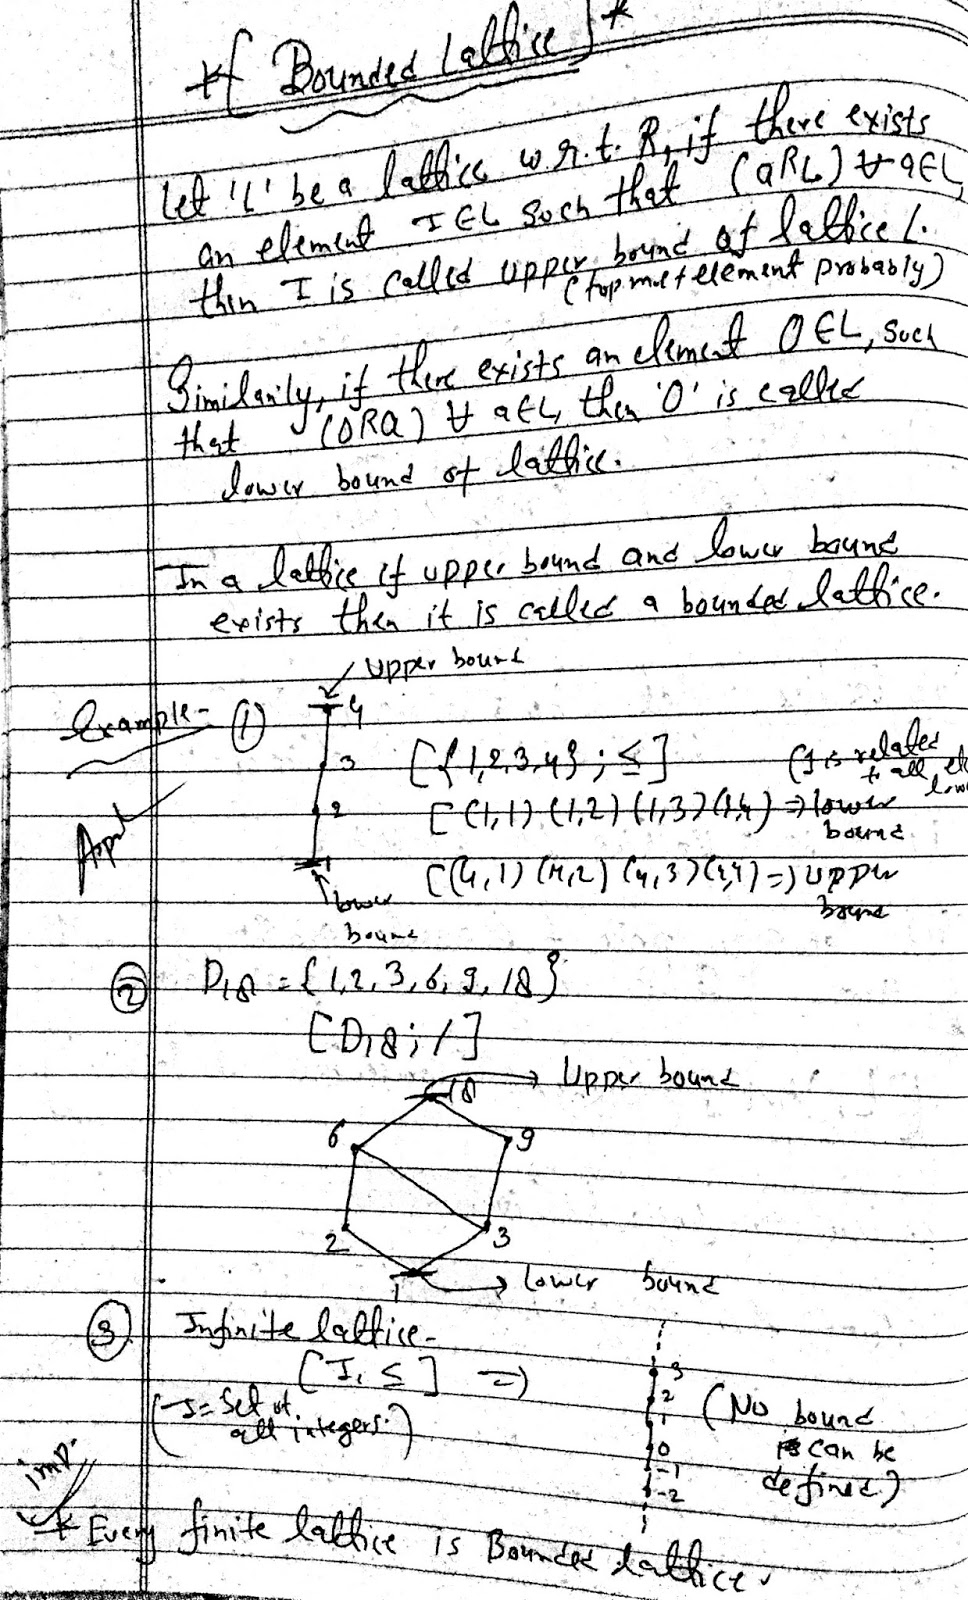 *[ Bounded Lattice ]*
Let 'L' be a lattice w.r.t. R, if there exists
an element I ∈ L such that (aRL) ∀ a∈L,
then I is called upper bound of lattice L.
(topmost element probably)
Similarily, if there exists an element O ∈ L, such
that (ORa) ∀ a∈L, then 'O' is called
lower bound of lattice.
In a lattice if upper bound and lower bound
exists then it is called a bounded lattice.
Upper bound
Example- ① 4
3 [{1,2,3,4} ; ≤] (1 is related
to all,
2 [(1,1) (1,2) (1,3) (1,4) => lower
bound
1 [(4,1) (4,2) (4,3) (4,4) => upper
bound
lower
bound
② D18 = {1,2,3,6,9,18}
[D18; /]
18 → Upper bound
6 9
2 3
1 → lower bound
③ Infinite lattice-
[I, ≤] =>
(I = Set of
all integers.)
3
2
1
0
-1
-2
(No bound
can be
defined)
imp.
* Every finite lattice is Bounded lattice.